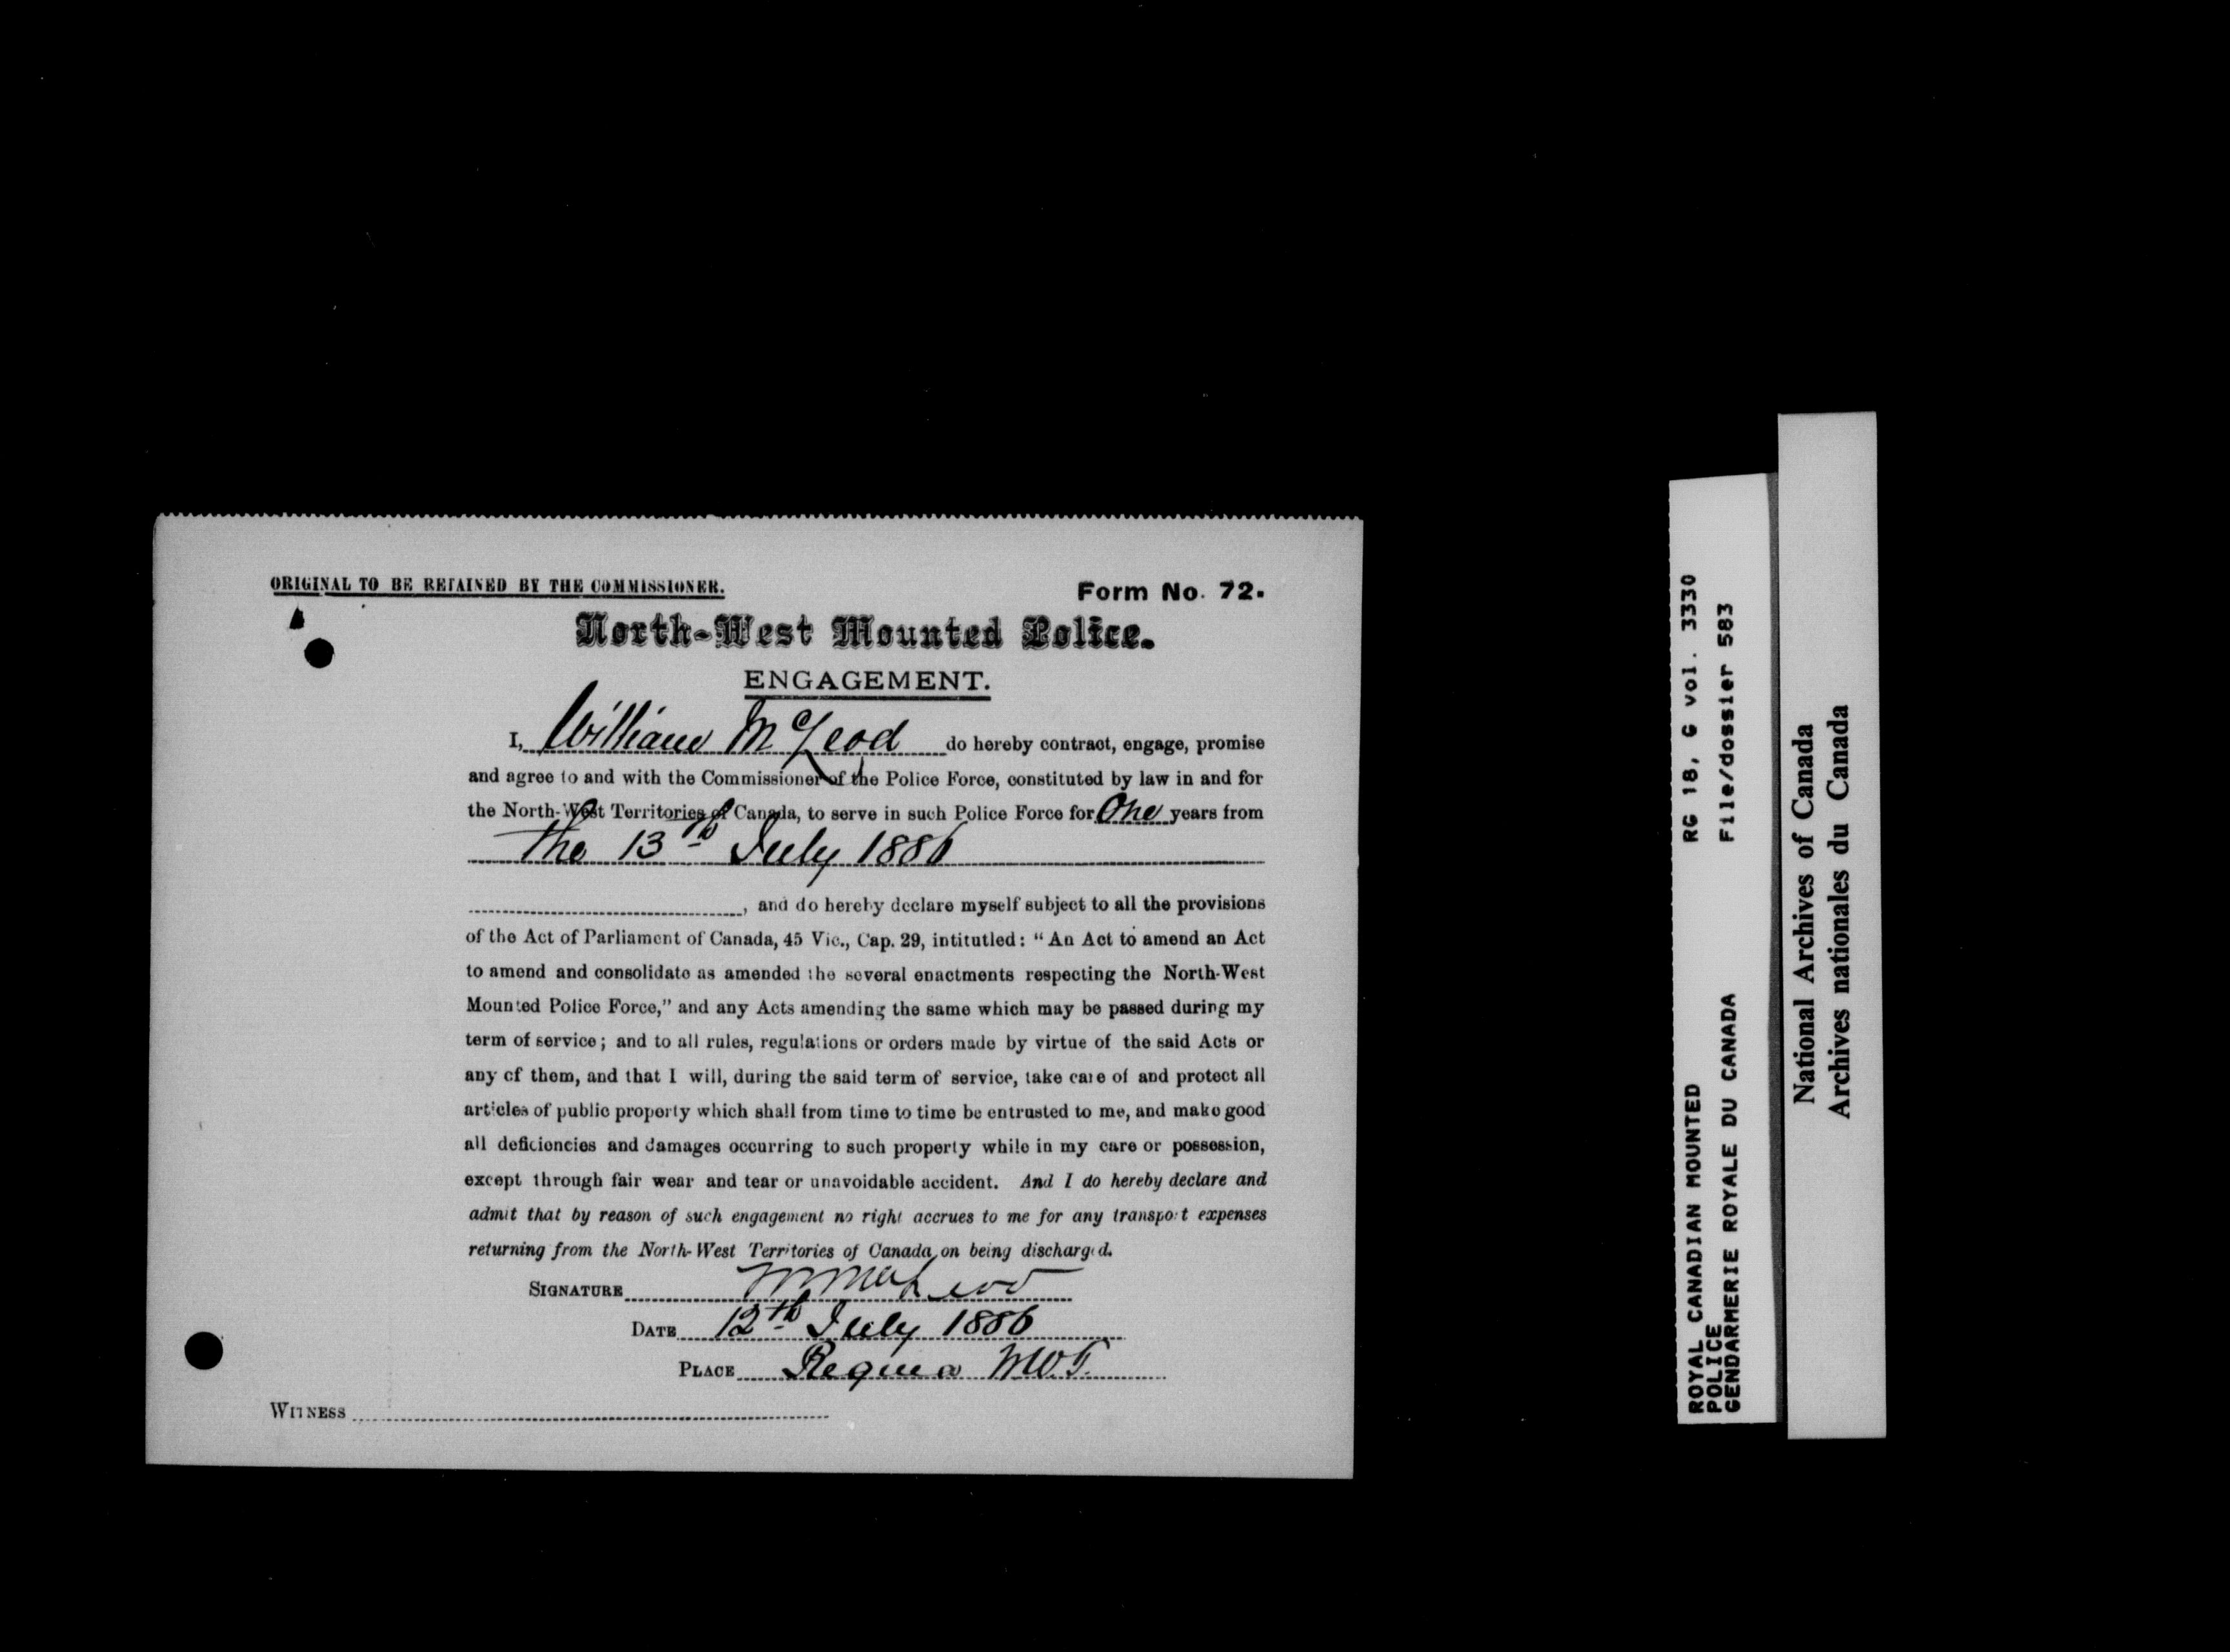 ORIGINAL TO BE RETAINED BY THE COMMISSIONER.
Form No. 72.
North-West Mounted Police.
ENGAGEMENT.
I, William McLeod do hereby contract, engage, promise
and agree to and with the Commissioner of the Police Force, constituted by law in and for
the North-West Territories of Canada, to serve in such Police Force for One years from
the 13th July 1886
, and do hereby declare myself subject to all the provisions
of the Act of Parliament of Canada, 45 Vic., Cap. 29, intitutled: "An Act to amend an Act
to amend and consolidate as amended the several enactments respecting the North-West
Mounted Police Force," and any Acts amending the same which may be passed during my
term of service; and to all rules, regulations or orders made by virtue of the said Acts or
any of them, and that I will, during the said term of service, take care of and protect all
articles of public property which shall from time to time be entrusted to me, and make good
all deficiencies and damages occurring to such property while in my care or possession,
except through fair wear and tear or unavoidable accident. And I do hereby declare and
admit that by reason of such engagement no right accrues to me for any transport expenses
returning from the North-West Territories of Canada on being discharged.
SIGNATURE Wm McLeod
DATE 12th July 1886
PLACE Regina N.W.T.
WITNESS
ROYAL CANADIAN MOUNTED
POLICE
GENDARMERIE ROYALE DU CANADA
RG 18, G vol. 3330
File/dossier 583
National Archives of Canada
Archives nationales du Canada